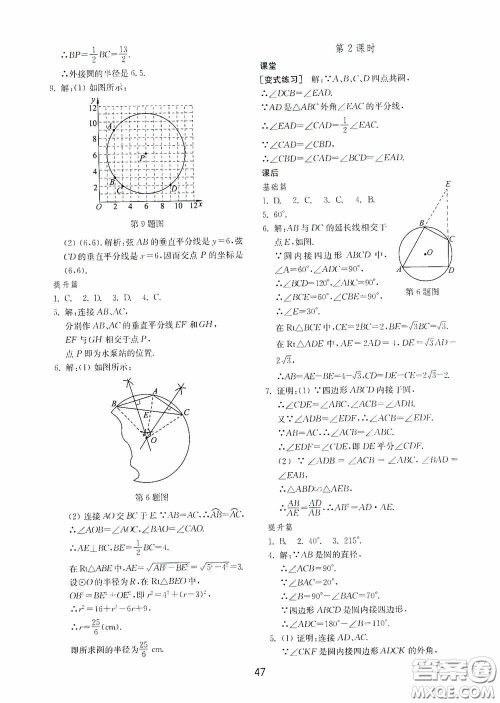 ∴BP=1/2BC=13/2.
∴外接圆的半径是6.5.
9. 解:(1)如图所示:
y
12
10
8
6
4
2
A
P
B
C
D
O 2 4 6 8 10 12 x
第9题图
(2)(6,6).解析:弦AB的垂直平分线是y=6,弦
CD的垂直平分线是x=6,因而交点P的坐标是
(6,6).
提升篇
1. C. 2. D. 3. D. 4. C.
5. 解:连接AB,AC,
分别作AB,AC的垂直平分线EF和GH,
EF与GH相交于点P,
点P即为水泵站的位置.
6. 解:(1)如图所示:
A
B
E
C
O
第6题图
(2)连接AO交BC于E.∵AB=AC,∴AB=AC,
∴∠AOB=∠AOC,∵OB=OC,
∴AE⊥BC,BE=1/2BC=4.
在Rt△ABE中,AE=√AB²-BE²=√5²-4²=3.
设⊙O的半径为R,在Rt△BEO中,
OB²=BE²+OE²,即r²=4²+(r-3)²,
∴r²=16+r²-6r+9,
∴r=25/6(cm).
即所求圆的半径为25/6 cm.
第2课时
课堂
[变式练习] 解:∵A,B,C,D四点共圆,
∴∠DCB=∠EAD.
∵AD是△ABC外角∠EAC的平分线,
∴∠EAD=∠CAD=1/2∠EAC.
∵∠CAD=∠CBD,
∴∠CBD=∠DCB=∠EAD=∠CAD.
课后
基础篇
1. D. 2. C. 3. C. 4. B.
5. 60°.
6. 解:AB与DC的延长线相交于
点E,如图.
∵圆内接四边形ABCD中,
∠A=60°,∠D=90°,
∴∠BCD=120°,∠ABC=90°,
∴∠BCE=60°,∠CBE=90°,
∴∠E=30°.
E
B
C
O
A
D
第6题图
在Rt△BCE中,CE=2BC=2,BE=√3BC=√3.
在Rt△ADE中,AE=2AD=4,DE=√3AD=
2√3,
∴AB=AE-BE=4-√3,CD=DE-CE=2√3-2.
7. 证明:(1)∵四边形ABCD内接于圆,
∴∠CDE=∠ABC,∠ACB=∠ADB.
又∵∠ADB=∠EDF,∴∠ACB=∠EDF.
∵AB=AC,∴∠ABC=∠ACB.
∴∠CDE=∠EDF,即DE平分∠CDF.
(2)∵∠ADB=∠ACB=∠ABC,∠BAD=
∠EAB,
∴△ABD∽△AEB.
∴AB/AE=AD/AB,∴AB²=AD·AE.
提升篇
1. B. 2. 40°. 3. 215°.
4. 解:∵AB是圆的直径,
∴∠ACB=90°.
∵∠BAC=20°,
∴∠B=90°-∠BAC=70°.
∵四边形ABCD是圆内接四边形,
∴∠ADC=180°-∠B=110°.
5. (1)证明:连接AD,AC.
∵∠CKF是圆内接四边形ADCK的外角,
47
答案圈